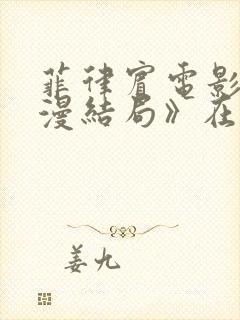 菲律宾电影
漫结局》在
姜九